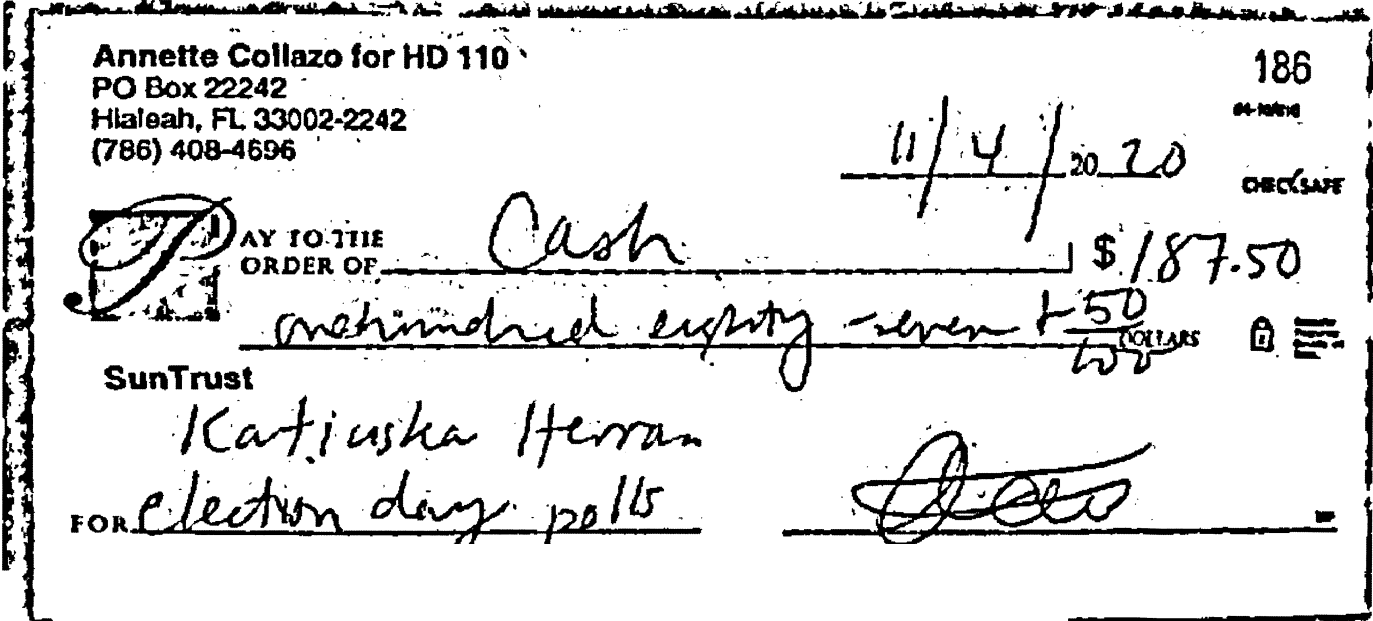 Annette Collazo for HD 110
PO Box 22242
Hialeah, FL 33002-2242
(786) 408-4696
186
11/4/2020
CHECKSAFE
PAY TO THE
ORDER OF Cash $187.50
one hundred eighty-seven + 50/100 DOLLARS
SunTrust
Katiuska Herran
FOR election day polls